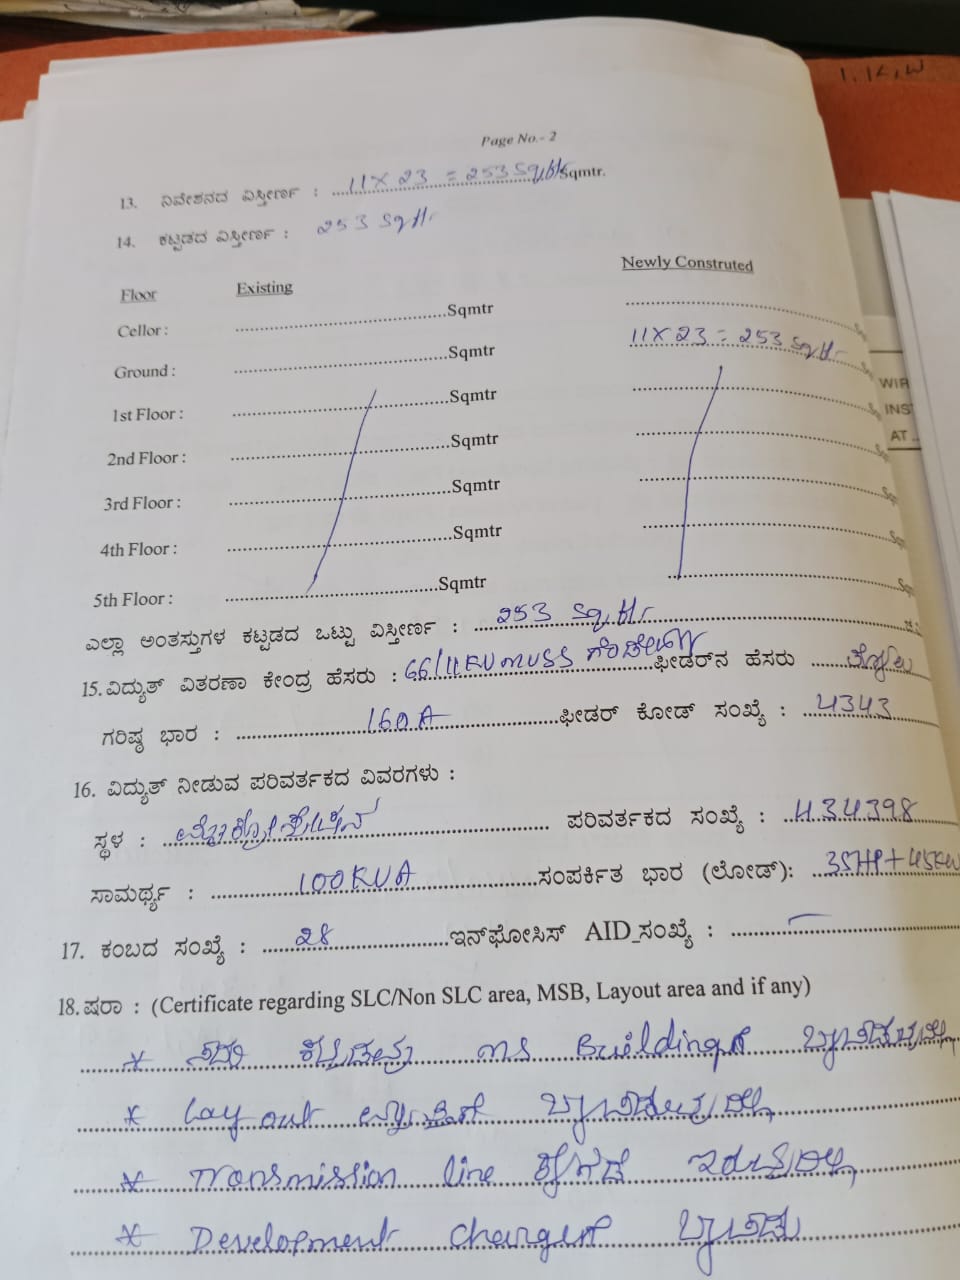 1.K.W
Page No.- 2
13. ನಿವೇಶನದ ವಿಸ್ತೀರ್ಣ : 11 X 23 = 253 Sqmtr.
14. ಕಟ್ಟಡದ ವಿಸ್ತೀರ್ಣ : 253 sqft
Floor Existing Newly Construted
Cellor : Sqmtr
Ground : Sqmtr 11 X 23 = 253 sqft
1st Floor : Sqmtr
2nd Floor : Sqmtr
3rd Floor : Sqmtr
4th Floor : Sqmtr
5th Floor : Sqmtr
ಎಲ್ಲಾ ಅಂತಸ್ತುಗಳ ಕಟ್ಟಡದ ಒಟ್ಟು ವಿಸ್ತೀರ್ಣ : 253 sqft
15. ವಿದ್ಯುತ್ ವಿತರಣಾ ಕೇಂದ್ರ ಹೆಸರು : 66/11KV MUSS ಫೀಡರ್‌ನ ಹೆಸರು
ಗರಿಷ್ಠ ಭಾರ : 160 A ಫೀಡರ್ ಕೋಡ್ ಸಂಖ್ಯೆ : 4343
16. ವಿದ್ಯುತ್ ನೀಡುವ ಪರಿವರ್ತಕದ ವಿವರಗಳು :
ಸ್ಥಳ : ಪರಿವರ್ತಕದ ಸಂಖ್ಯೆ : 434398
ಸಾಮರ್ಥ್ಯ : 100 KVA ಸಂಪರ್ಕಿತ ಭಾರ (ಲೋಡ್): 35HP + 45KW
17. ಕಂಬದ ಸಂಖ್ಯೆ : 28 ಇನ್‌ಫೋಸಿಸ್ AID_ಸಂಖ್ಯೆ :
18. ಷರಾ : (Certificate regarding SLC/Non SLC area, MSB, Layout area and if any)
* ಸದರಿ ಕಟ್ಟಡವು ms Buildingಗೆ
* Layout
* Transmission line ಕೆಳಗಡೆ ಇರುವುದಿಲ್ಲ
* Development chargesಗೆ
WIR
INST
AT